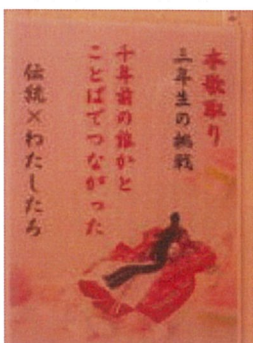 本歌取り
三年生の挑戦
千年前の誰かと
ことばでつながった
伝統×わたしたち